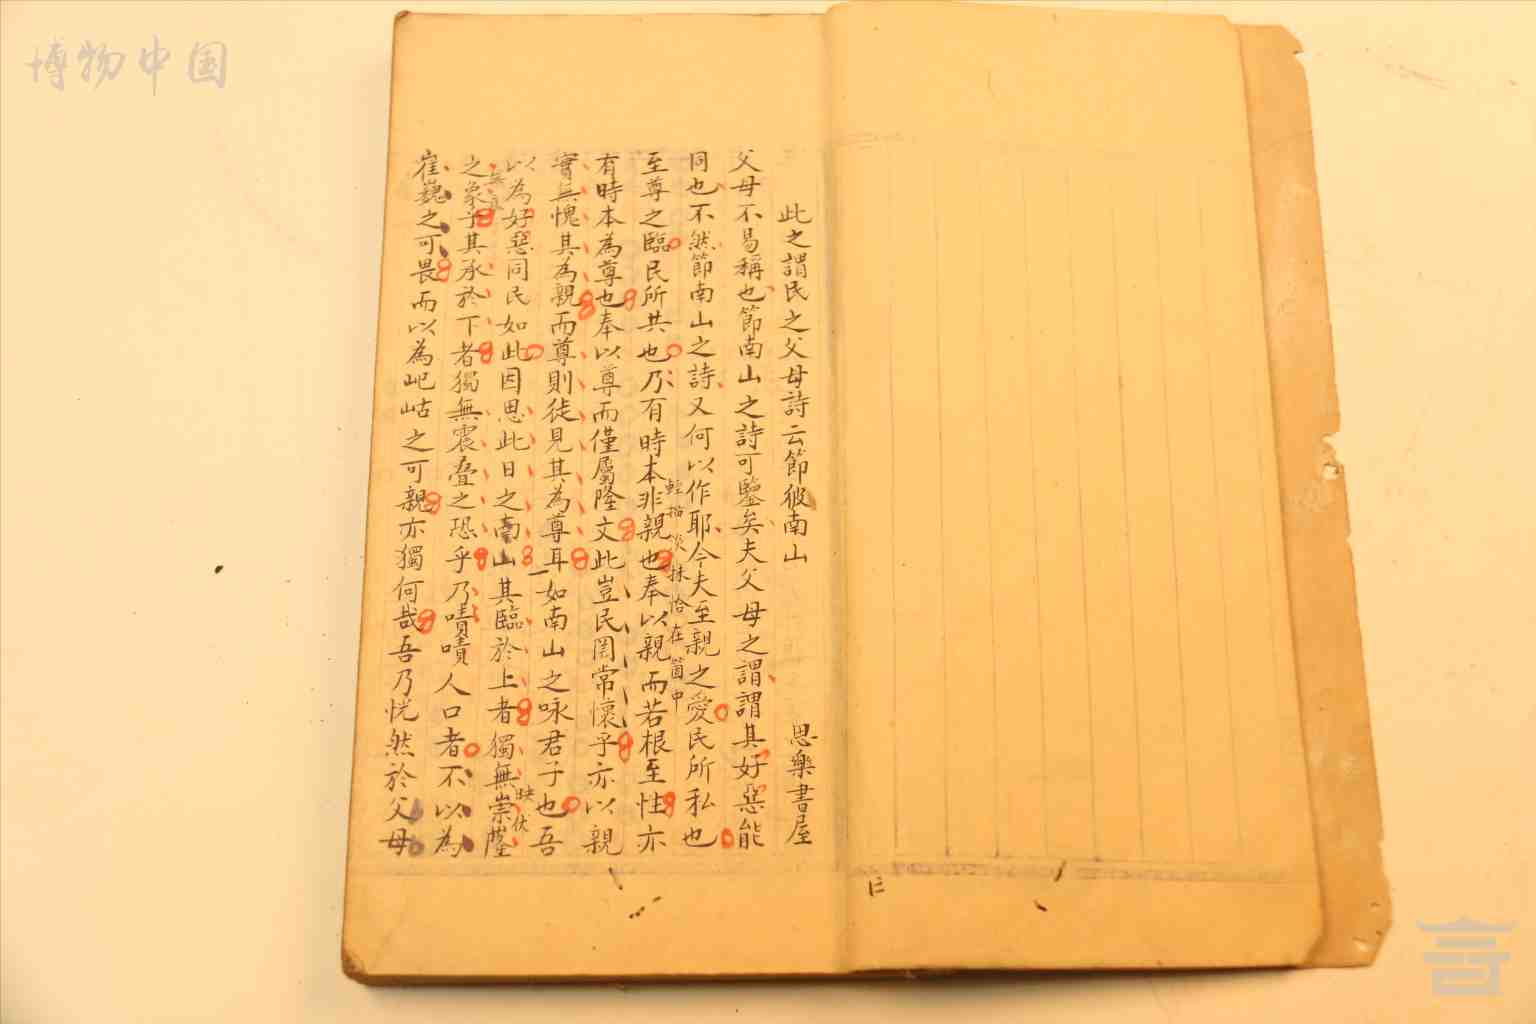 此之謂民之父母詩云節彼南山
思樂書屋
父母不易稱也節南山之詩可鑒矣夫父母之謂謂其好惡能
同也不然節南山之詩又何以作耶今夫至親之愛民所私也
至尊之臨民所共也乃有時本非親也奉以親而若根至性亦
輕描淡抹恰在箇中
有時本為尊也奉以尊而僅屬隆文此豈民罔常懷乎亦以親
實無愧其為親而尊則徒見其為尊耳如南山之咏君子也吾
以為好惡同民如此因思此日之南山其臨於上者獨無崇隆
映伏
之象乎其承於下者獨無震疊之恐乎乃嘖嘖人口者不以為
崔巍之可畏而以為屺岵之可親亦獨何哉吾乃恍然於父母
博物中国